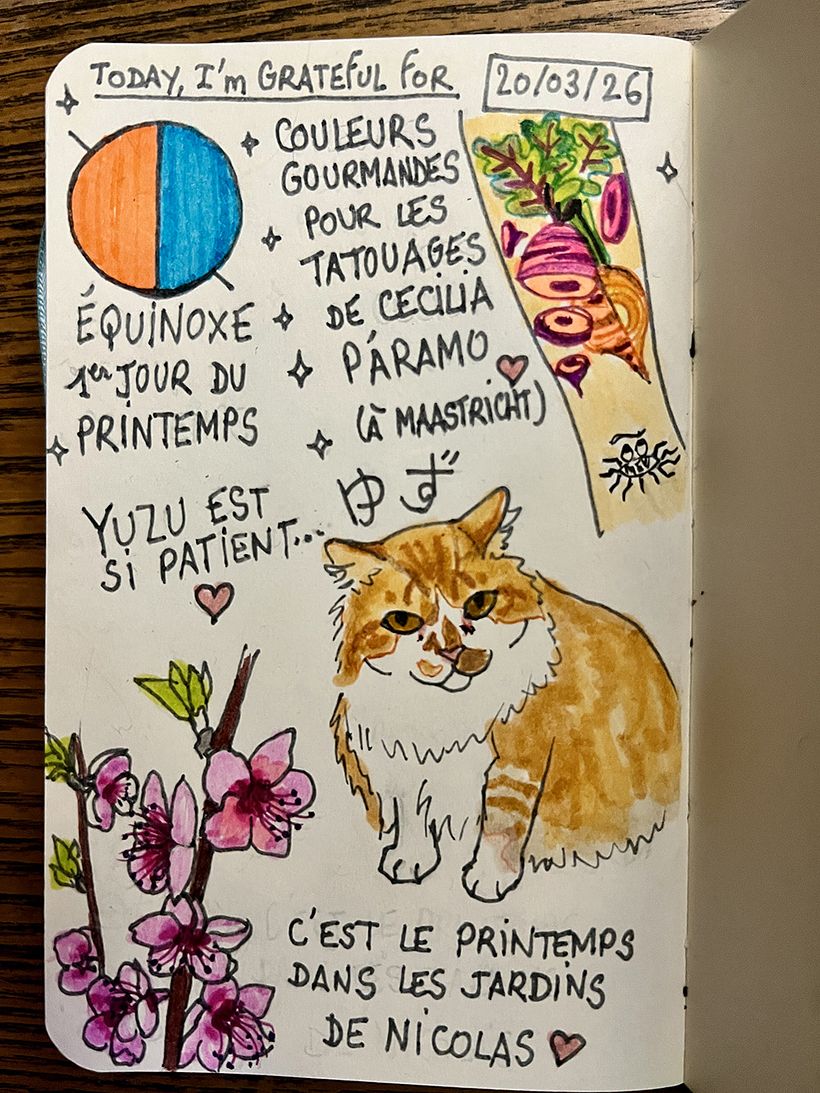 TODAY, I'm GRATEFUL FOR
20/03/26
ÉQUINOXE
1er JOUR DU
PRINTEMPS
COULEURS
GOURMANDES
POUR LES
TATOUAGES
DE CECILIA
PÁRAMO
(À MAASTRICHT)
YUZU EST
SI PATIENT...
ゆず
C'EST LE PRINTEMPS
DANS LES JARDINS
DE NICOLAS